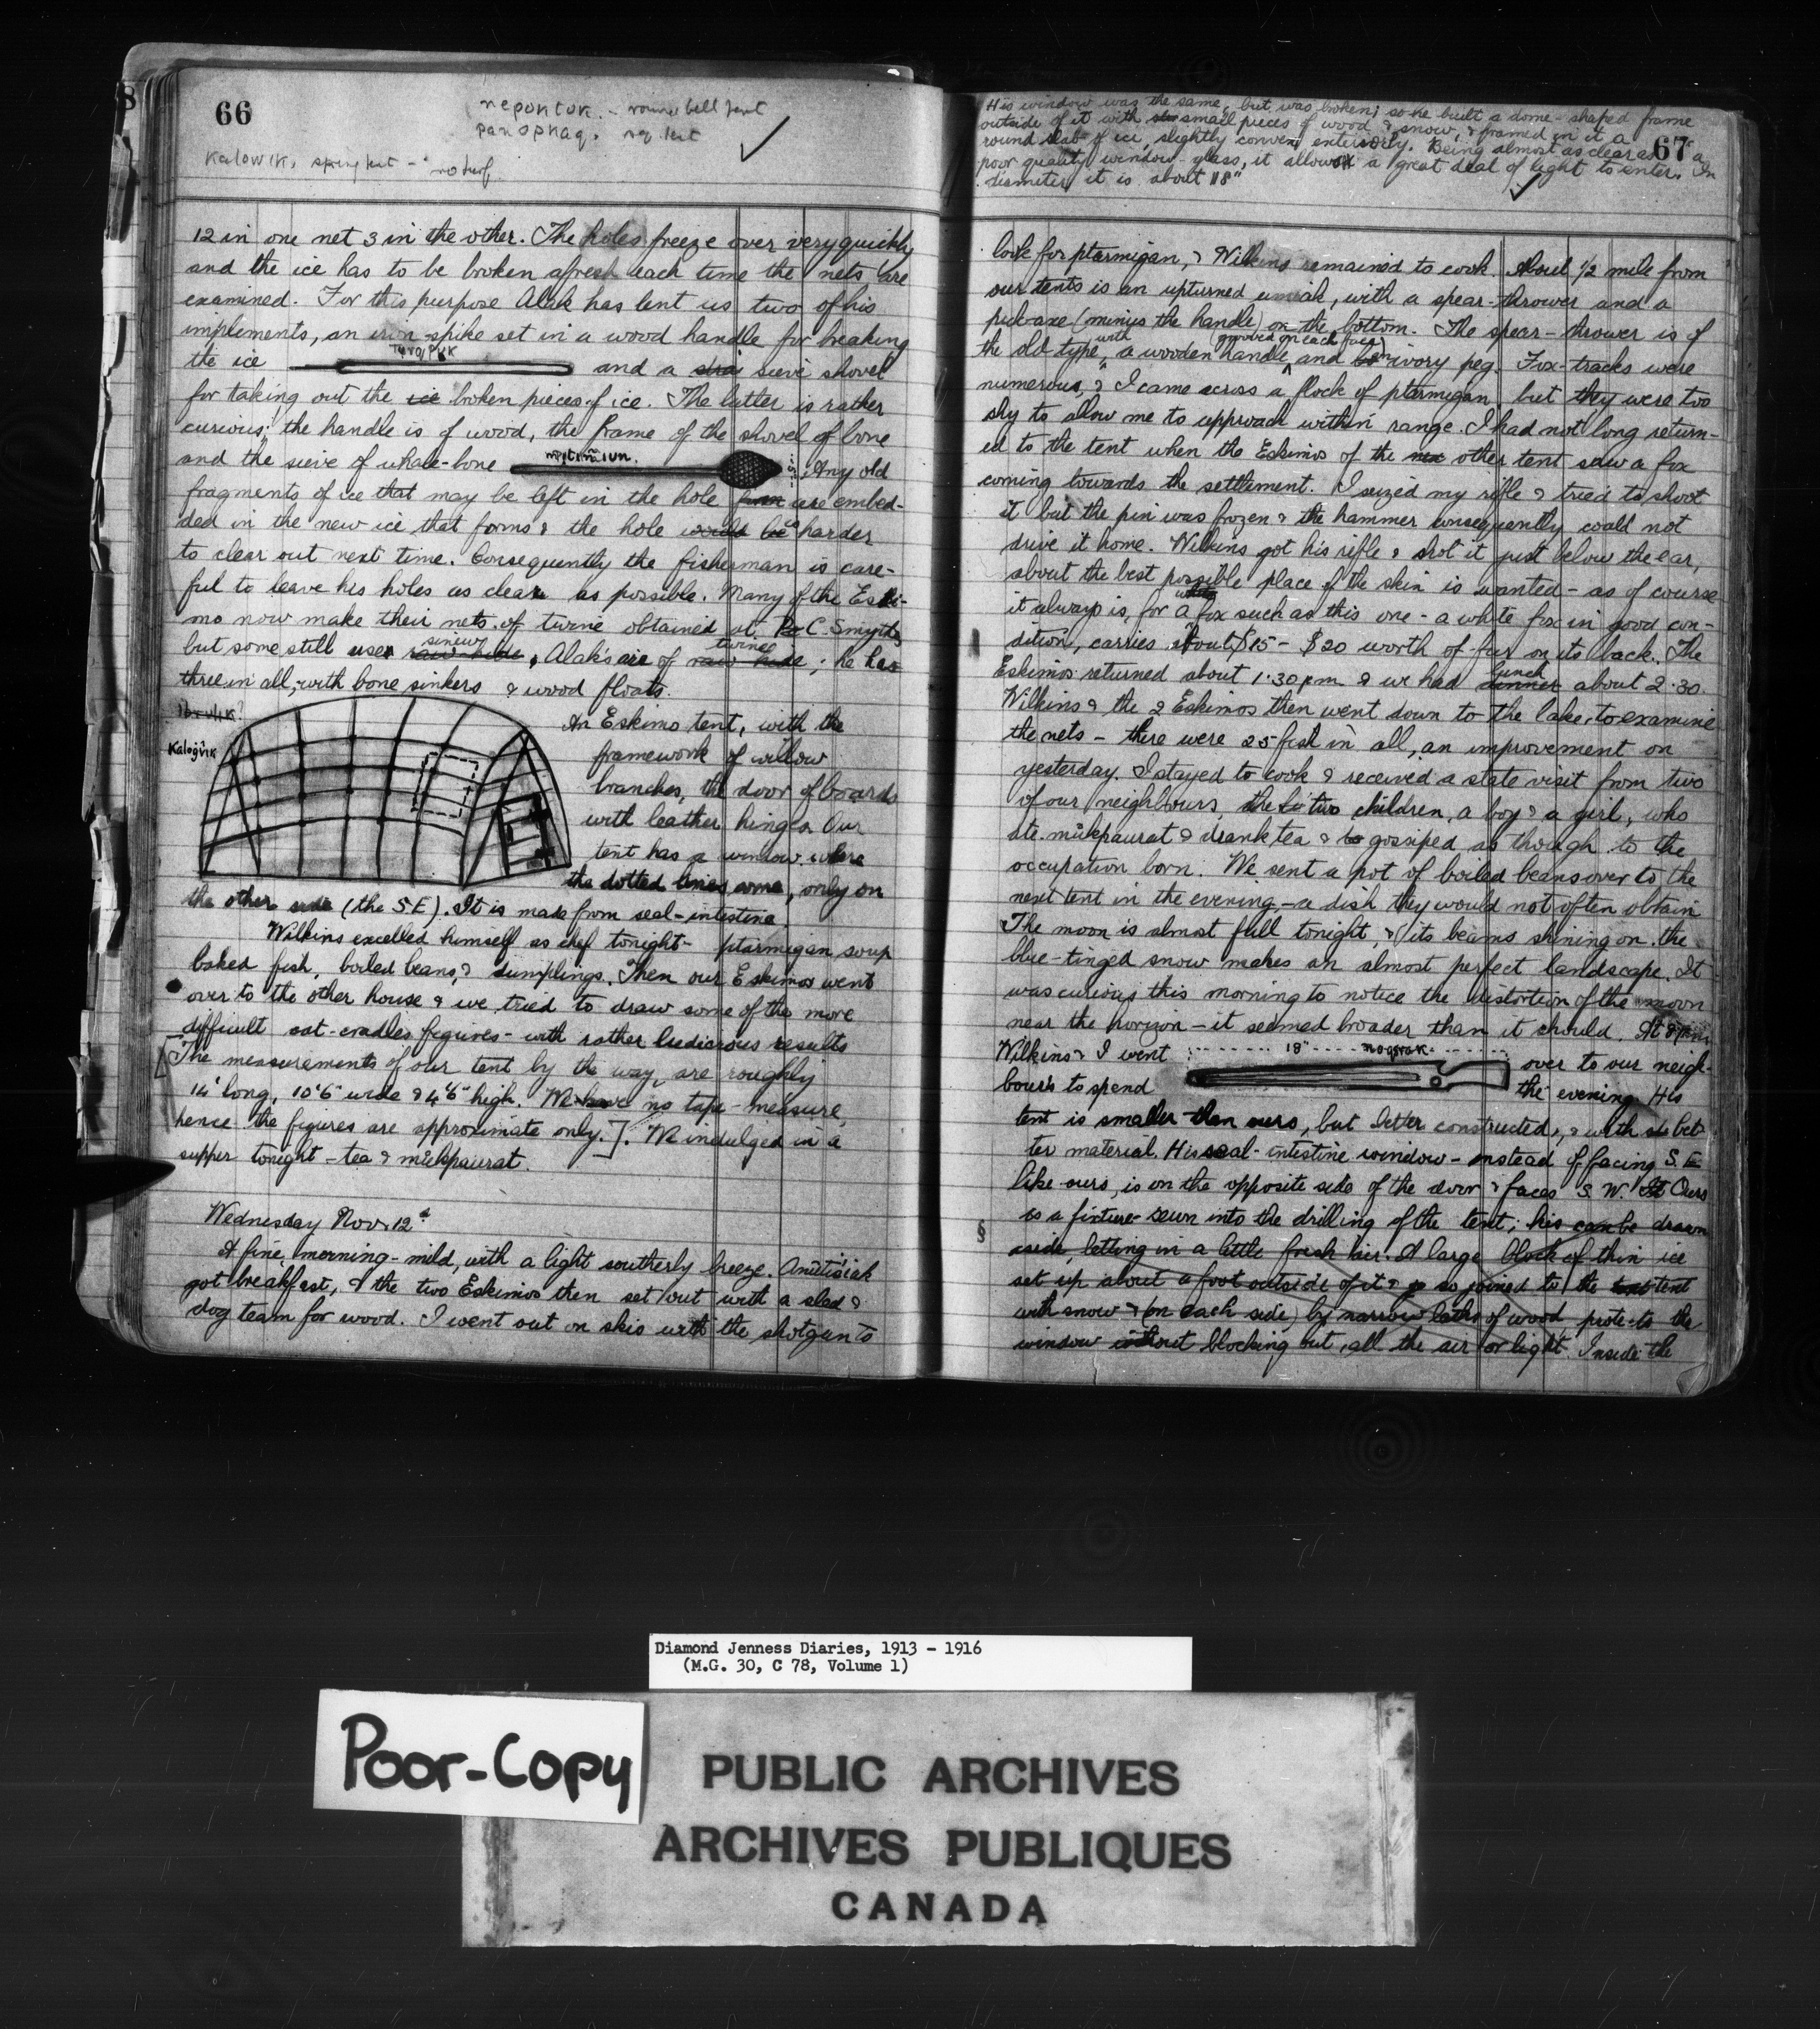 66
nepuktuk. - round bell tent
panopkaq. reg. tent
Kalowik, spring hut - no turf.
12 in one net 3 in the other. The holes freeze over very quickly
and the ice has to be broken afresh each time the nets are
examined. For this purpose Alak has lent us two of his
implements, an iron spike set in a wood handle for breaking
the ice and a sieve shovel
for taking out the ice broken pieces of ice. The latter is rather
curious; the handle is of wood, the frame of the shovel of bone
and the sieve of whale-bone Any old
fragments of ice that may be left in the hole are embed-
ded in the new ice that forms & the hole would be harder
to clear out next time. Consequently the fisherman is care-
ful to leave his holes as clear as possible. Many of the Eski-
mo now make their nets of twine obtained at C. Smythe
but some still use raw hide sinew, Alak's are of raw hide twine; he has
three in all, with bone sinkers & wood floats.
Kalogvik
An Eskimo tent, with the
framework of willow
branches, the door of boards
with leather hinges. Our
tent has a window where
the dotted lines come, only on
the other side (the S.E). It is made from seal-intestine
Wilkins excelled himself as chef tonight - ptarmigan soup
baked fish, boiled beans, & dumplings. Then our Eskimos went
over to the other house & we tried to draw some of the more
difficult cat-cradles figures - with rather ludicrous results
[The measurements of our tent by the way, are roughly
14' long, 10'6" wide & 4'6" high. We have no tape-measure,
hence the figures are approximate only.]. We indulged in a
supper tonight - tea & mukpaurat.
Wednesday Nov. 12th
A fine morning - mild, with a light southerly breeze.
got breakfast, & the two Eskimos then set out with a sled &
dog team for wood. I went out on skis with the shotgun to
67
His window was the same, but was broken; so he built a dome-shaped frame
outside of it with small pieces of wood & snow, & framed in it a
round slab of ice, slightly convex exteriorly. Being almost as clear as a
poor quality window-glass, it allowed a great deal of light to enter. In
diameter it is about 18"
look for ptarmigan, & Wilkins remained to cook. About 1/2 mile from
our tents is an upturned umiak, with a spear-thrower and a
pick-axe (minus the handle) on the bottom. The spear-thrower is of
the old type, with a wooden handle grooved on each face and ivory peg. Fox-tracks were
numerous, & I came across a flock of ptarmigan, but they were too
shy to allow me to approach within range. I had not long return-
ed to the tent when the Eskimos of the other tent saw a fox
coming towards the settlement. I seized my rifle & tried to shoot
it but the pin was frozen & the hammer consequently could not
drive it home. Wilkins got his rifle & shot it just below the ear,
about the best possible place if the skin is wanted - as of course
it always is, for a white fox such as this one - a white fox in good con-
dition, carries about $15 - $20 worth of fur on its back. The
Eskimos returned about 1.30 pm & we had dinner lunch about 2.30.
Wilkins & the 2 Eskimos then went down to the lake, to examine
the nets - there were 25 fish in all, an improvement on
yesterday. I stayed to cook & received a state visit from two
of our neighbours, the two children, a boy & a girl, who
ate mukpaurat & drank tea & gossiped as though to the
occupation born. We sent a pot of boiled beans over to the
next tent in the evening - a dish they would not often obtain
The moon is almost full tonight, & its beams shining on the
blue-tinged snow makes an almost perfect landscape. It
was curious this morning to notice the distortion of the moon
near the horizon - it seemed broader than it should. At 8 pm
Wilkins & I went over to our neigh-
18"
bours to spend the evening. His
tent is smaller than ours, but better constructed, & with bet-
ter material. His seal-intestine window - instead of facing S.E
like ours, is on the opposite side of the door & faces S.W. Ours
is a fixture sewn into the drilling of the tent; his can be drawn
aside, letting in a little fresh air. A large block of thin ice
set up about a foot outside of it & so joined to the tent
with snow & (on each side) by narrow laths of wood protects the
window without blocking out all the air or light. Inside the
§
Diamond Jenness Diaries, 1913 - 1916
(M.G. 30, C 78, Volume 1)
Poor-Copy
PUBLIC ARCHIVES
ARCHIVES PUBLIQUES
CANADA